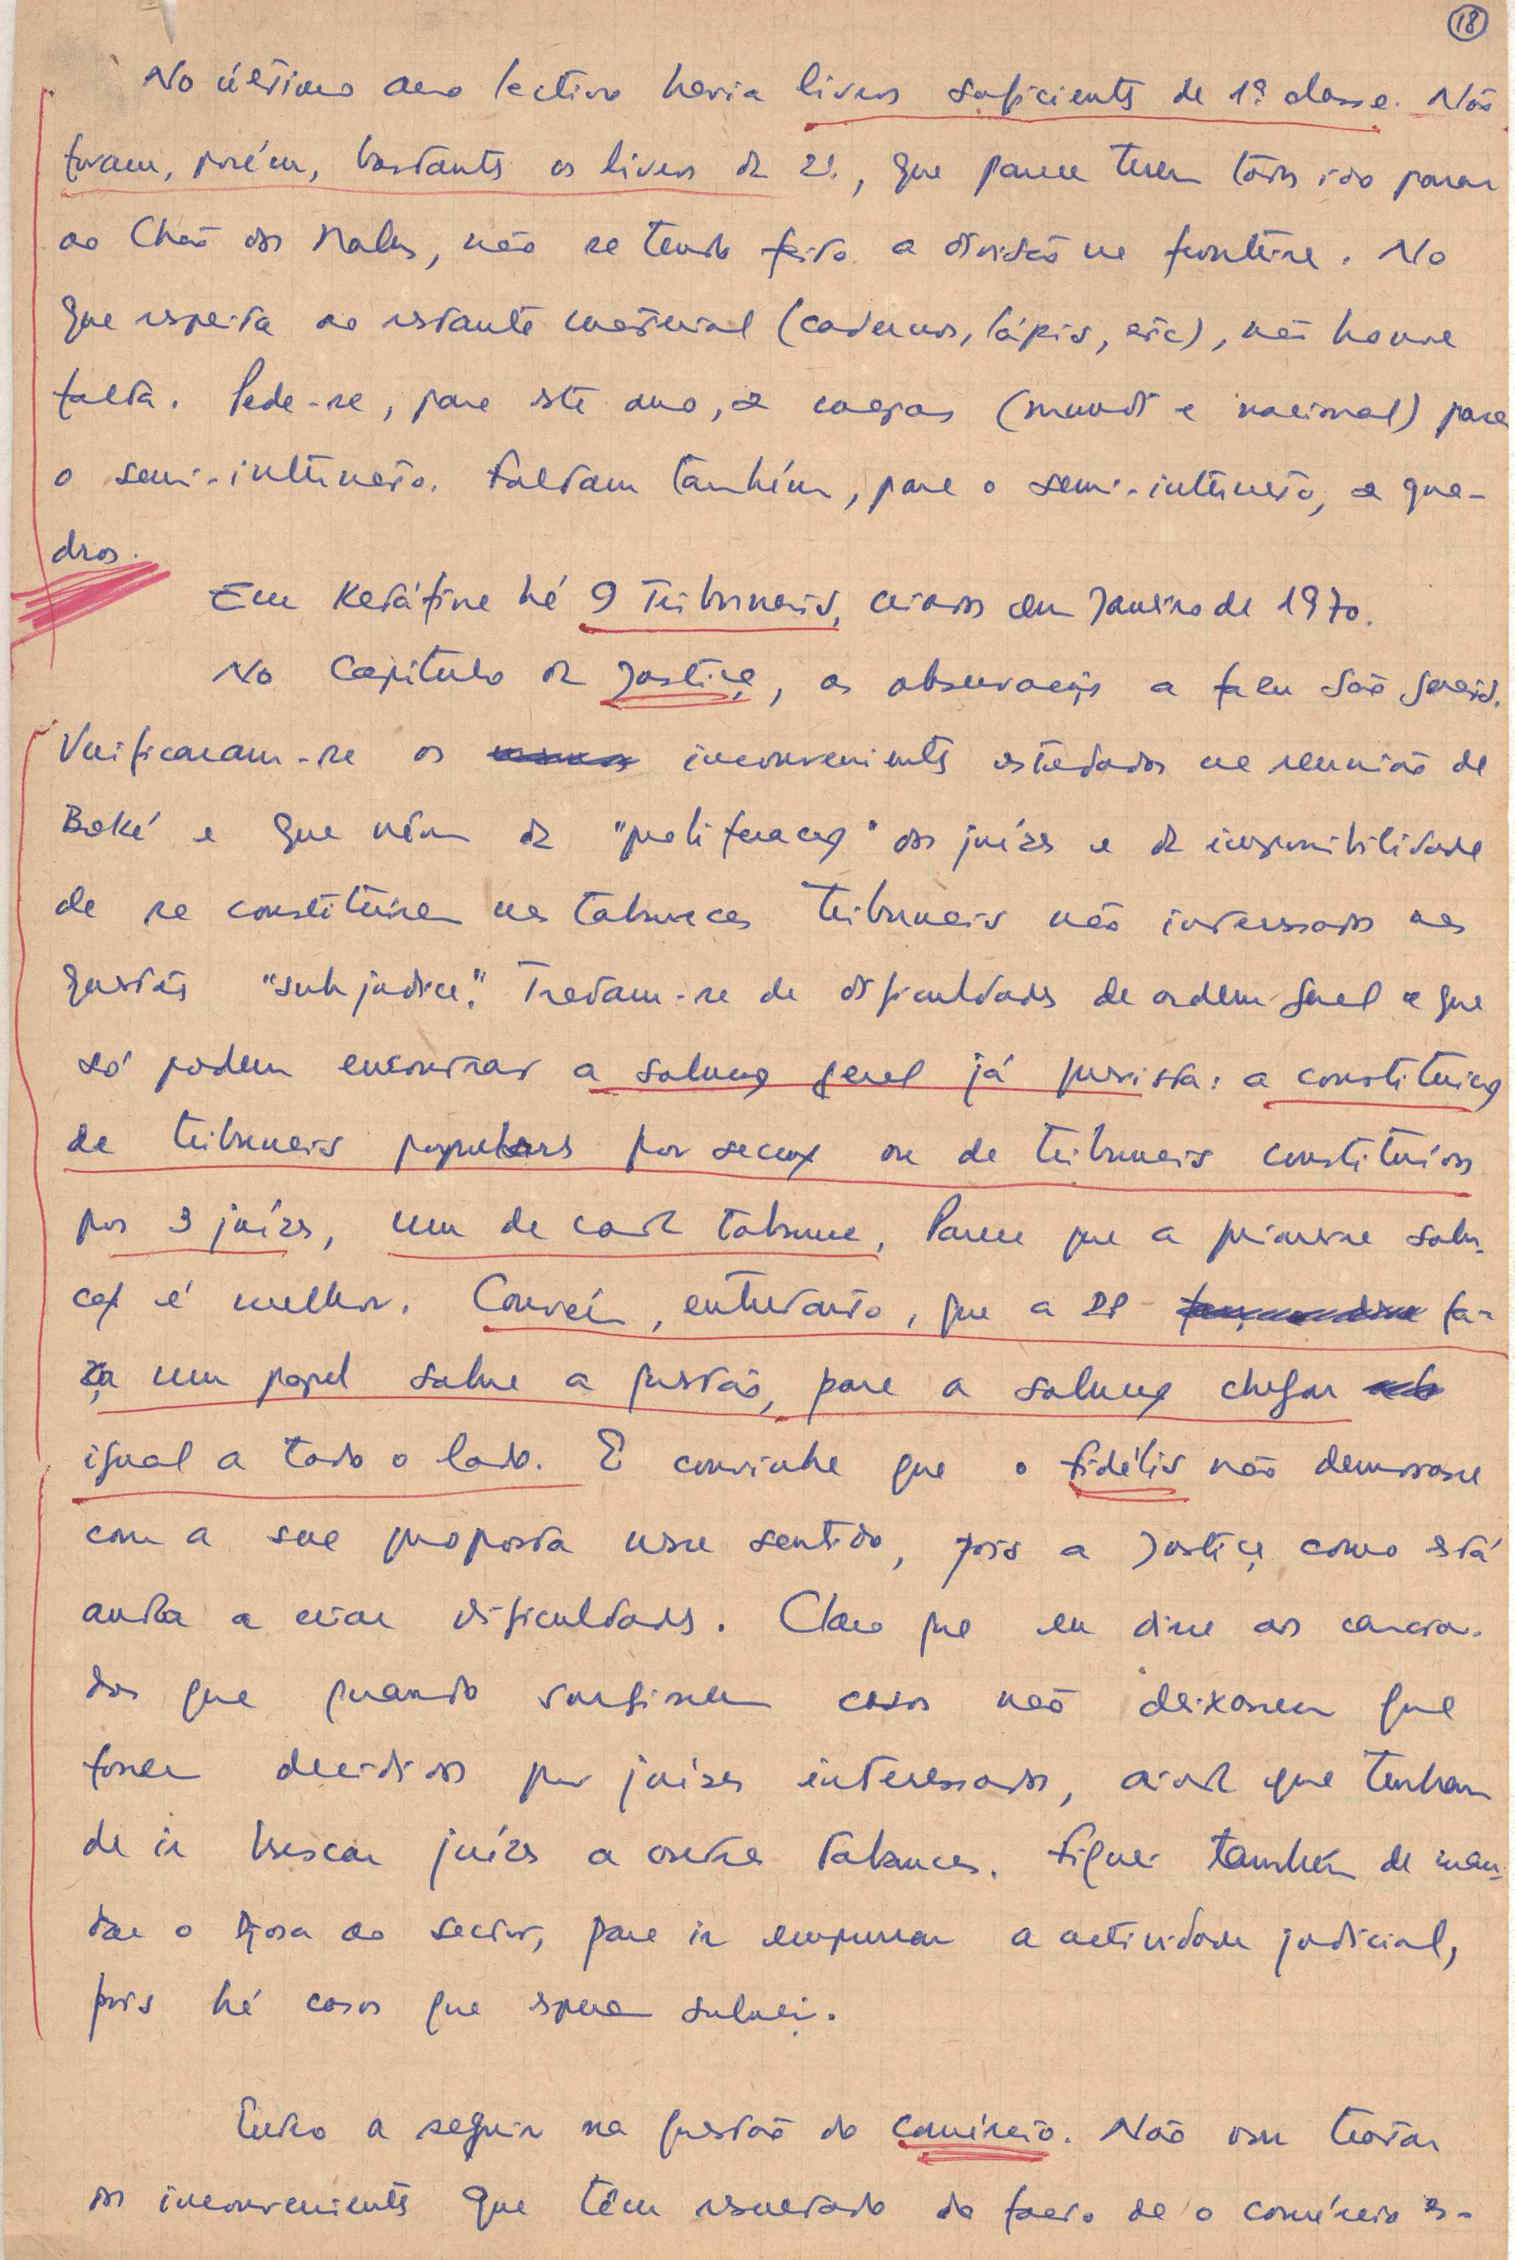 18
No último ano lectivo havia livros suficientes de 1ª classe. Não
foram, porém, bastantes os livros da 2ª, que parece terem todos ido parar
ao Chão dos Nalus, não se tendo feito a divisão na fronteira. No
que respeita ao restante material (cadernos, lápis, etc), não houve
falta. Pede-se, para este ano, mapas (mundi e nacional) para
o semi-internato. Faltam também, para o semi-internato, qua-
dros.
Em Retáfine há 9 Tribunais, criados em Janeiro de 1970.
No Capítulo da Justiça, as observações a fazer são gerais.
Verificaram-se os inconvenientes estudados na reunião de
Boké e que vêm da "proliferação" dos juízes e da impossibilidade
de se constituirem nas tabancas tribunais não interessados nas
questões "sub judice". Tratam-se de dificuldades de ordem geral e que
só podem encontrar a solução geral já prevista: a constituição
de tribunais populares por secção ou de tribunais constituídos
por 3 juízes, um de cada tabanca. Parece que a primeira solu-
ção é melhor. Convém, entretanto, que a DP fa-
ça um papel sobre a questão, para a solução chegar
igual a todo o lado. E convinha que o Fidélis não demorasse
com a sua proposta nesse sentido, pois a Justiça como está
anda a criar dificuldades. Claro que eu disse aos camara-
das que quando surgirem casos não deixassem que
fossem decididos por juízes interessados, ainda que tenham
de ir buscar juízes a outras tabancas. Fiquei também de man-
dar o Djosa ao sector, para ir empurrar a actividade judicial,
pois há casos que esperam solução.
Entro a seguir na questão do comércio. Não vou tratar
os inconvenientes que têm resultado do facto de o comércio es-